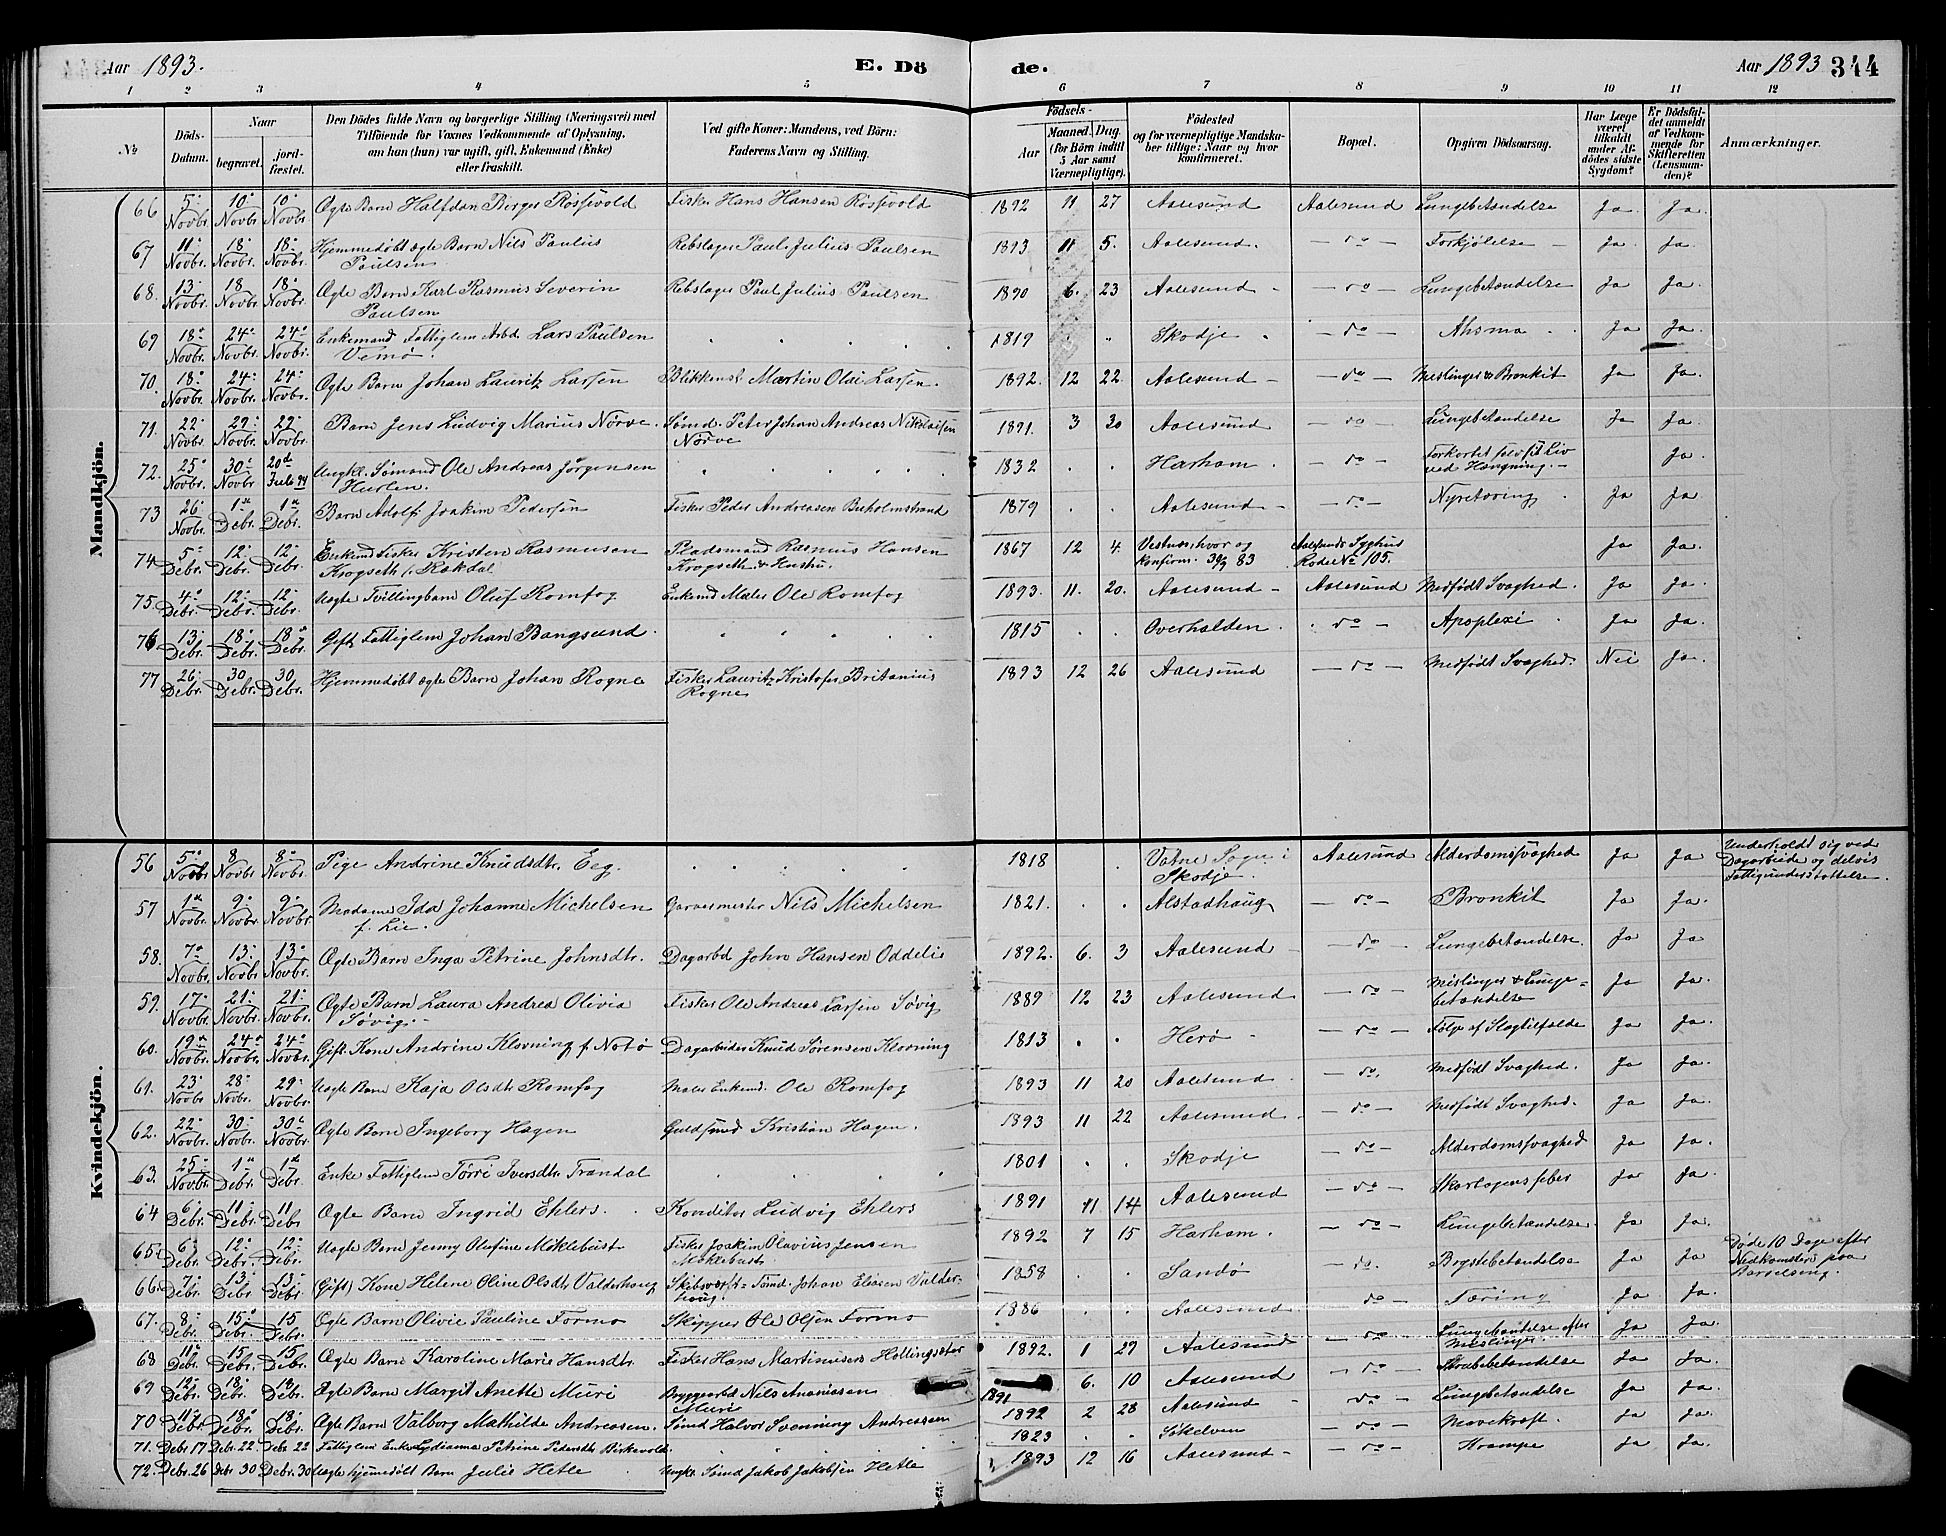 Aar 1893. E. Dö de. Aar 1893 344
1 2 3 4 5 6 7 8 9 10 11 12
No Döds-Datum. Naar begravet. jordfæstet. Den Dödes fulde Navn og borgerlige Stilling (Næringsvei) med Tilföiende for Voxnes Vedkommende af Oplysning, om han (hun) var ugift, gift, Enkemand (Enke) eller fraskilt. Ved gifte Koner: Mandens, ved Börn: Faderens Navn og Stilling. Födsels- Aar Maaned. Dag. (for Börn indtil 5 Aar samt Værnepligtige). Födested og for værnepligtige Mandskaber tillige: Naar og hvor konfirmeret. Bopæl. Opgiven Dödsaarsag. Har Læge været tilkaldt under Afdödes sidste Sygdom? Er Dödsfaldet anmeldt af Vedkommende for Skifteretten (Lensmanden)? Anmærkninger.
Mandkjön.
66 5 Novbr. 10 Novbr. 10 Novbr Ægte Barn Halfdan Birger Røssevold Fisker Hans Hansen Røssevold 1892 11 27 Aalesund Aalesund Lungebetændelse Ja Ja.
67 11 Novbr. 18 Novbr. 18 Novbr. Hjemmedøbt ægte Barn Nils Paulius Paulsen Rebslager Paul Julius Paulsen 1893 11 5. Aalesund. do Forkjølelse Ja Ja
68. 13 Novbr. 18 Novbr. 18 Novbr. Ægte Barn Karl Rasmus Severin Paulsen Rebslager Paul Julius Paulsen 1890 6. 23 Aalesund do Lungebetændelse Ja Ja.
69 18 Novbr. 24 Novbr. 24 Novbr. Enkemand Fattiglem Arbd Lars Paulsen Vemø. 1819 Skodje do Ahsma Ja Ja
70. 18 Novbr. 24 Novbr. 24 Novbr. Ægte Barn Johan Lauritz Larsen Blikkensl Martin Olai Larsen. 1892. 12 22. Aalesund do Meslinger & Bronkit Ja Ja.
71. 22 Novbr. 29 Novbr. 29 Novbr. Barn Jens Ludvig Marius Nørve. Sømd. Peter Johan Andreas Nikolaisen Nørve 1891. 3 30 Aalesund do Lungebetændelse Ja Ja
72. 25 Novbr. 30 Novbr 20de Febr 94 Ungkl. Sømand Ole Andreas Jørgensen Hurlen. 1832 Harham. do Forkortet selv sit Liv ved Hængning. Ja.
73 26 Novbr. 1ste Debr. 1ste Debr. Barn Adolf Joakim Pedersen Fisker Peder Andreasen Buholmstrand 1879 Aalesund do Nyretæring Ja Ja
74 5 Debr. 12 Debr. 12 Debr. Enkemd Fisker Kristen Rasmusen Krogseth f. Rakdal Pladsmand Rasmus Hansen Krogseth & Hustru. 1867 12 4 Vestnes, hvor og konfirm. 30/9 83 Aalesunds Syghus Rode No 105. Ja Ja.
75. 4 Debr. 12 Debr. 12 Debr. Uægte Tvillingbarn Oluf Romfog Enkemd Maler Ole Romfog 1893. 11. 20. Aalesund Aalesund Medfødt Svaghed. Ja Ja.
76 13 Debr. 18 Debr. 18 Debr. Gift Fattiglem Johan Bangsund. 1815 Overhalden. do Apoplexi Ja Ja.
77 26 Debr. 30 Debr. 30 Debr. Hjemmedøbt ægte Barn Johan Rogne Fisker Lauritz Kristofer Britanius Rogne 1893 12 26 Aalesund do Medfødt Svaghed. Nei Ja.
Kvindekjön.
56 5 Novbr 8 Novbr 8 Novbr Pige Andrine Knudsdtr. Eeg. 1818 Vatne Sogn i Skodje. Aalesund Alderdomssvaghed Ja Ja Underholdt sig ved Dagarbeide og delvis Fattigunderstøttelse.
57 1ste Novbr. 9 Novbr. 9 Novbr Madame Ida Johanne Michelsen f. Lie. Garvermester Nils Michelsen 1821. Alstadhaug do Bronkit Ja Ja.
58. 7 Novbr. 13 Novbr. 13 Novbr. Ægte Barn Inga Petrine Johnsdtr. Dagarbd John Hansen Oddelie 1892. 6. 3 Aalesund do Lungebetændelse. Ja Ja
59. 17 Novbr. 21 Novbr. 21 Novbr. Ægte Barn Laura Andrea Olivia Søvig. Fisker Ole Andreas Larsen Søvig 1889 12 23 Aalesund do Meslinger & Lungebetændelse Ja Ja.
60. 19 Novbr. 24 Novbr. 24 Novbr. Gift Kone Andrine Klovning f. Notø Dagarbeider Knud Sørensen Klovning 1813 Herø do Følge af Slagtilfælde Ja Ja.
61. 23 Novbr 28 Novbr. 29 Novbr. Uægte Barn Kaja Olsdtr Romfog Maler Enkemd. Ole Romfog 1893 11 20 Aalesund do. Medfødt Svaghed. Ja Ja.
62. 22 Novbr. 30 Novbr. 30 Novbr. Ægte Barn Ingeborg Hagen Guldsmed Kristian Hagen. 1893 11 22 Aalesund do Medfødt Svaghed. Ja Ja.
63. 25 Novbr. 1ste Debr. 1ste Debr. Enke Fattiglem Tørri Iversdtr. Trandal 1801 Skodje do Alderdomssvaghed Ja Ja.
64 6 Debr. 11 Debr. 11 Debr Ægte Barn Ingrid Ehlers. Konditor Ludvig Ehlers 1891 11 14 Aalesund do Skarlagensfeber Ja Ja
65. 6 Debr. 12 Debr. 12 Debr. Uægte Barn Jenny Olufine Møklebust Fisker Joakim Olavius Jensen Møklebust 1892 7 15 Harham. do Lungebetændelse. Ja Ja.
66. 7 Debr. 13 Debr. 13 Debr. Gift Kone Helene Oline Olsdtr Valderhaug Sømd. Johan Eliasen Valderhaug. 1858 Sandø do. Brystbetændelse Ja Ja Døde 10 Dage efter Nedkomsten paa Barselseng.
67. 8 Debr. 15 Debr. 15 Debr. Ægte Barn Olivie Pauline Formo Skipper Ole Olsen Formo 1886 Aalesund do Tæring Ja Ja.
68 11 Debr. 15 Debr. 15 Debr. Ægte Barn Karoline Marie Hansdtr. Fisker Hans Martinusen Hellingsæter 1892. 1 29 Aalesund do Lungebetændelse efter Meslinger. Ja Ja.
69 12 Debr. 18 Debr. 18 Debr. Ægte Barn Margit Anette Muri Bryggearbd Nils Ananiasen Muri 1891 6. 10 Aalesund do Strubebetændelse Ja Ja.
70 11 Debr. 18 Debr. 18 Debr. Ægte Barn Valborg Mathilde Andreasen. Sømd Halvor Svenning Andreassen 1892 2 28 Aalesund do Lungebetændelse Ja Ja.
71. Debr 17 Debr. 22. Debr 22 Fattiglem Enke Lydianna Petrine Pedersdtr Birkevold. 1823 Søkelven do Mavekræft. Ja Ja.
72. Debr. 26 Debr 30 Debr. 30 Uægte hjemedøbt Barn Julie Hetle Ungkl. Sømd Jakob Jakobsen Hetle 1893 12 16 Aalesund do Krampe Ja Ja.